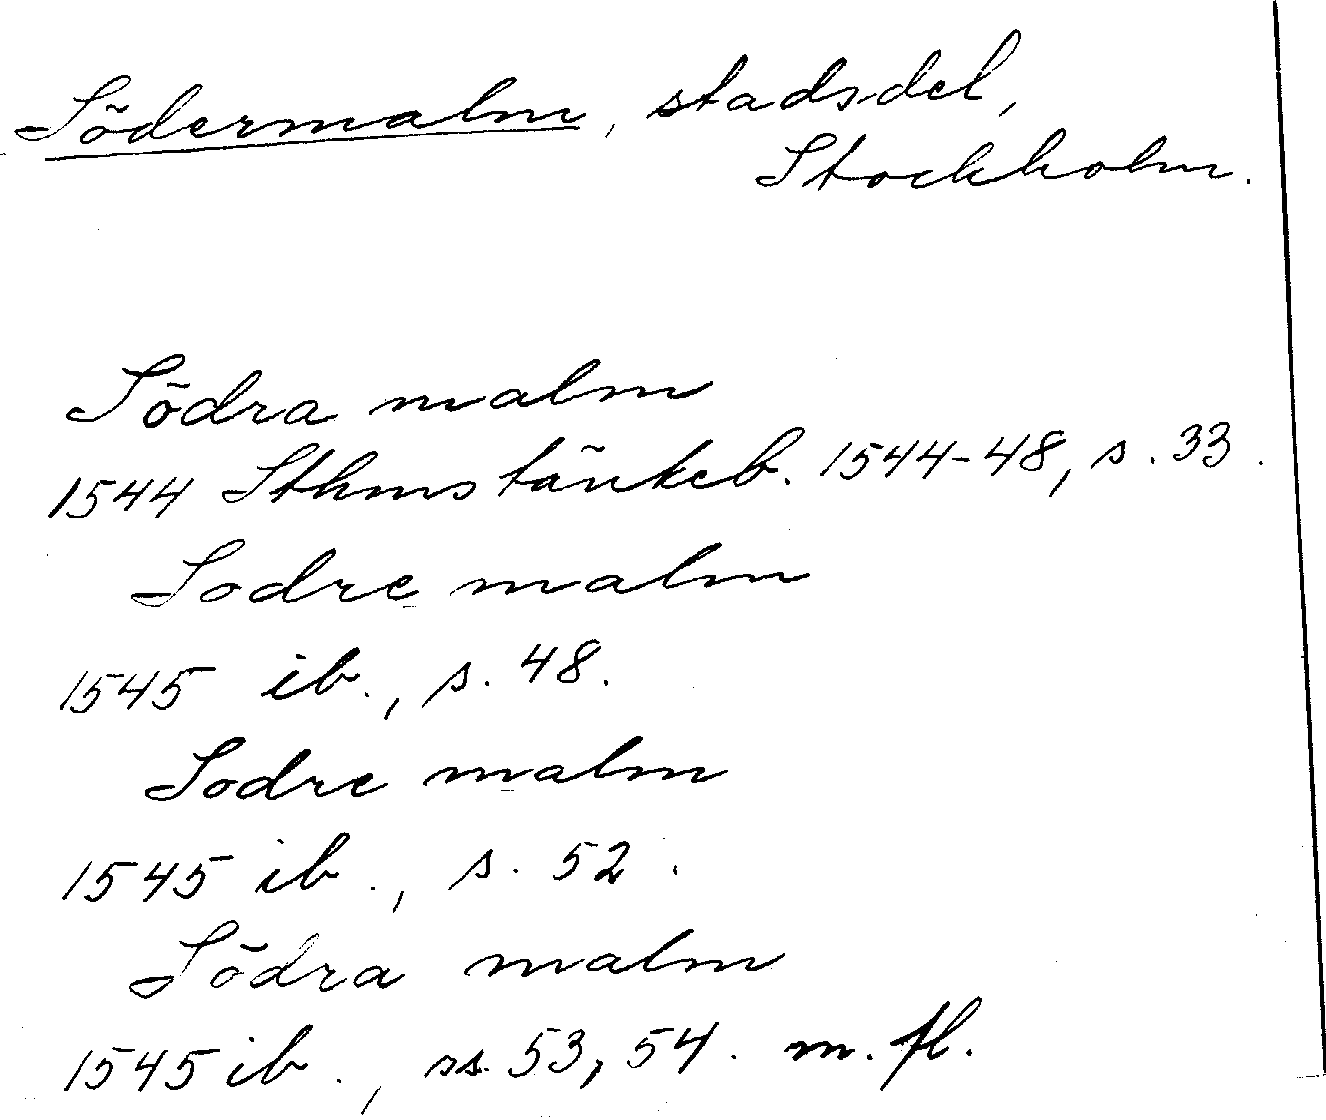 Södermalm, stadsdel,
Stockholm.
Södra malm
1544 Sthms tänkeb. 1544-48, s. 33.
Sodre malm
1545 ib., s. 48.
Sodre malm
1545 ib., s. 52.
Södra malm
1545 ib., ss. 53, 54. m. fl.